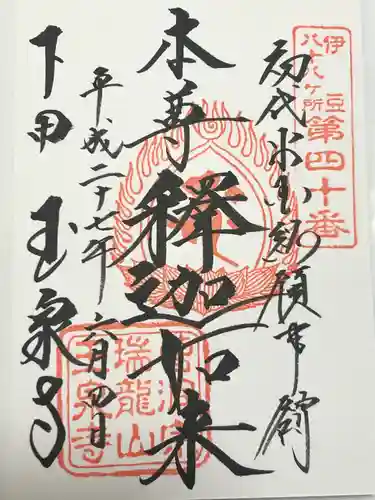 伊豆
八十八ケ所
第四十番
初代米国総領事館
本尊釋迦如来
平成二十七年六月四日
下田 玉泉寺
瑞龍山
玉泉寺